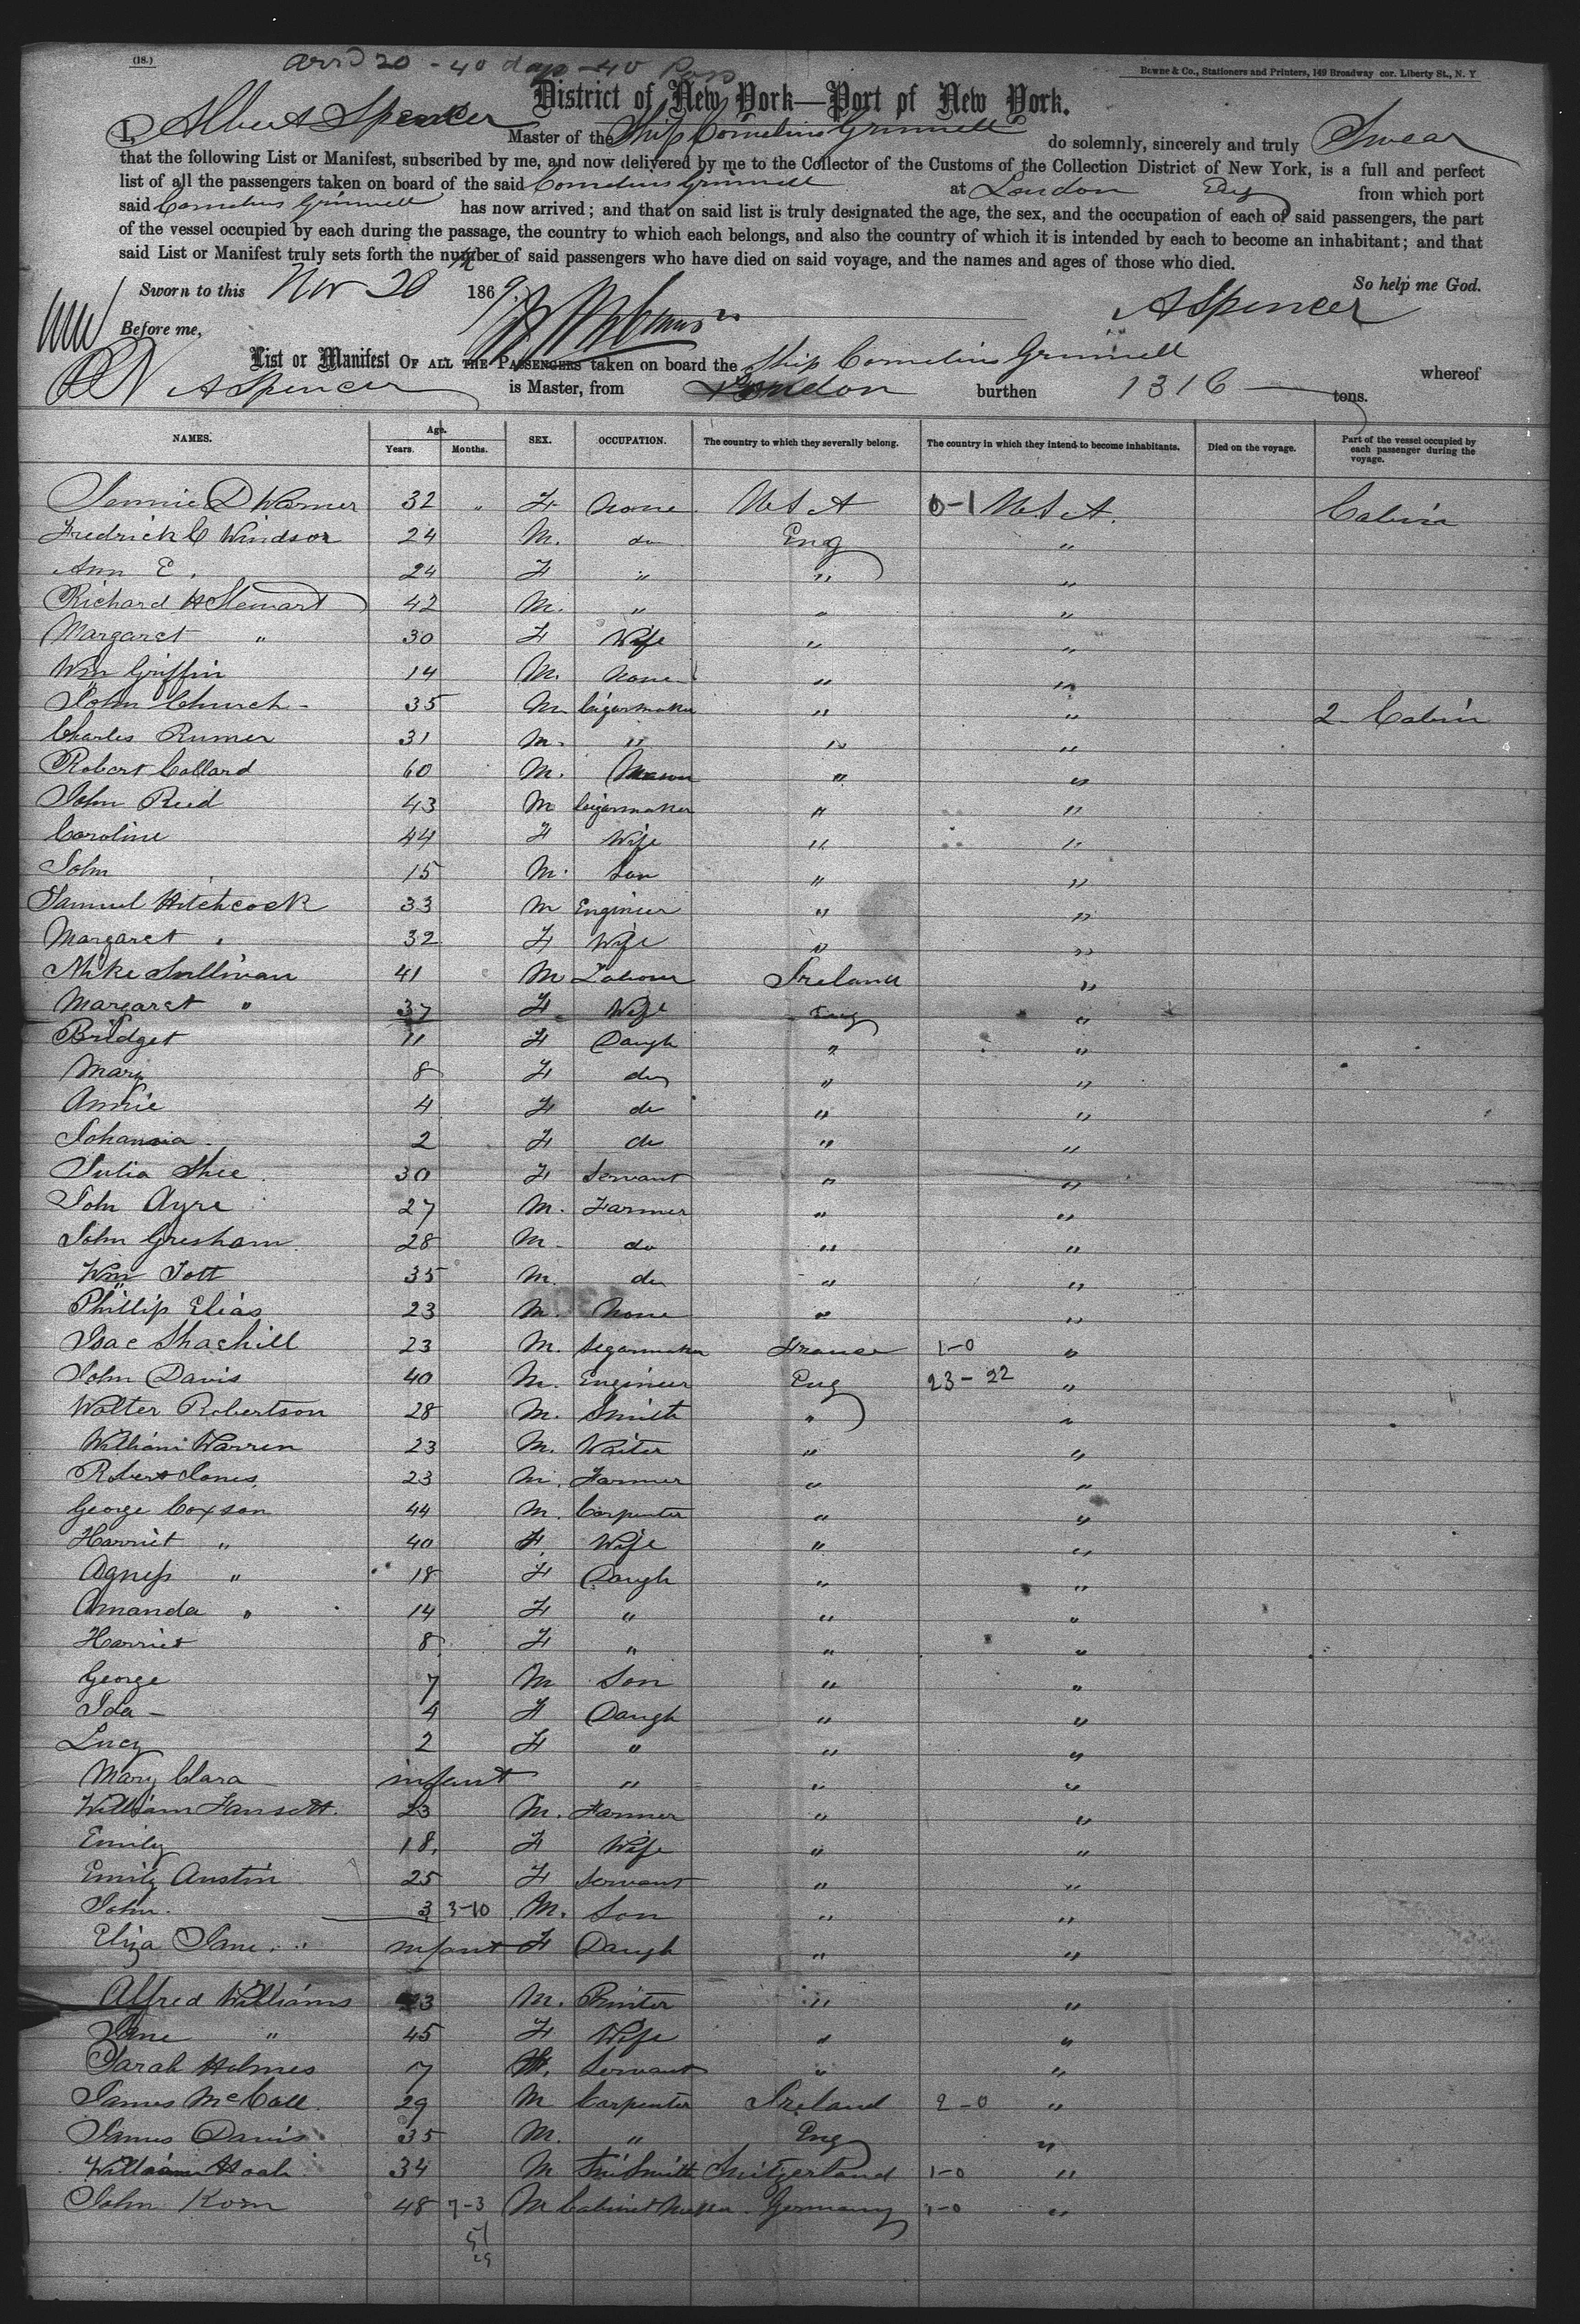 (18.)
Arrd 20 - 40 days - 40 Pass
Bowne & Co., Stationers and Printers, 149 Broadway cor. Liberty St., N. Y
District of New York—Port of New York.
I, Albert Spencer Master of the Ship Cornelius Grinnell do solemnly, sincerely and truly Swear
that the following List or Manifest, subscribed by me, and now delivered by me to the Collector of the Customs of the Collection District of New York, is a full and perfect
list of all the passengers taken on board of the said Cornelius Grinnell at London Eng from which port
said Cornelius Grinnell has now arrived; and that on said list is truly designated the age, the sex, and the occupation of each of said passengers, the part
of the vessel occupied by each during the passage, the country to which each belongs, and also the country of which it is intended by each to become an inhabitant; and that
said List or Manifest truly sets forth the number of said passengers who have died on said voyage, and the names and ages of those who died.
Sworn to this Nov 20 1869. So help me God.
Before me, A Spencer
List or Manifest OF ALL THE PASSENGERS taken on board the Ship Cornelius Grinnell whereof
A Spencer is Master, from London burthen 1316 tons.
NAMES. Age. Years. Months. SEX. OCCUPATION. The country to which they severally belong. The country in which they intend to become inhabitants. Died on the voyage. Part of the vessel occupied by each passenger during the voyage.
Jennie D Warner 32 " F None U S A 0-1 U S A. Cabin
Fredrick C Windsor 24 M. do Eng "
Ann E. 24 F " " "
Richard H Stewart 42 M. " " "
Margaret " 30 F Wife " "
Wm Griffin 14 M. None " "
John Church - 35 M Cigarmaker " " 2 Cabin
Charles Rumer 31 M. " " "
Robert Collard 60 M. Mason " "
John Reed 43 M Cigarmaker " "
Caroline 44 F Wife " "
John 15 M. Son " "
Samuel Hitchcock 33 M Engineer " "
Margaret " 32 F Wife " "
Mike Sullivan 41 M Labour Ireland "
Margaret " 37 F Wife Eng "
Bridget 11 F Daugh " "
Mary 8 F do " "
Annie 4 F do " "
Johanna 2 F do " "
Julia Shee 30 F Servant " "
John Ayre 27 M. Farmer " "
John Gresham 28 M - do " "
Wm Tott 35 M. do " "
Phillip Elias 23 M. None " "
Isac Shachill 23 M. Segarmaker France 1-0 "
John Davis 40 M. Engineer Eng 23-22 "
Walter Robertson 28 M. Smith " "
William Warren 23 M. Waiter " "
Robert Jones 23 M. Farmer " "
George Coxson 44 M. Carpenter " "
Harriet " 40 F. Wife " "
Agness " 18 F Daugh " "
Amanda " 14 F " " "
Harriet 8 F " " "
George 7 M Son " "
Ida - 4 F Daugh " "
Lucy 2 F " " "
Mary Clara infant " " "
William Fansett. 23 M. Farmer " "
Emily 18. F Wife " "
Emily Austin 25 F Servant " "
John. 3 3-10 M. Son " "
Eliza Jane " infant F Daugh " "
Alfred Williams 23 M. Printer " "
Jane " 45 F Wife " "
Sarah Holmes 17 F. Servant " "
James McCall. 29 M Carpenter Ireland 2-0 "
James Davis 35 M. " Eng "
William Hoah 34 M TinSmith Switzerland 1-0 "
John Korn 48 7-3 M Cabinet Maker Germany 1-0 "
51
29